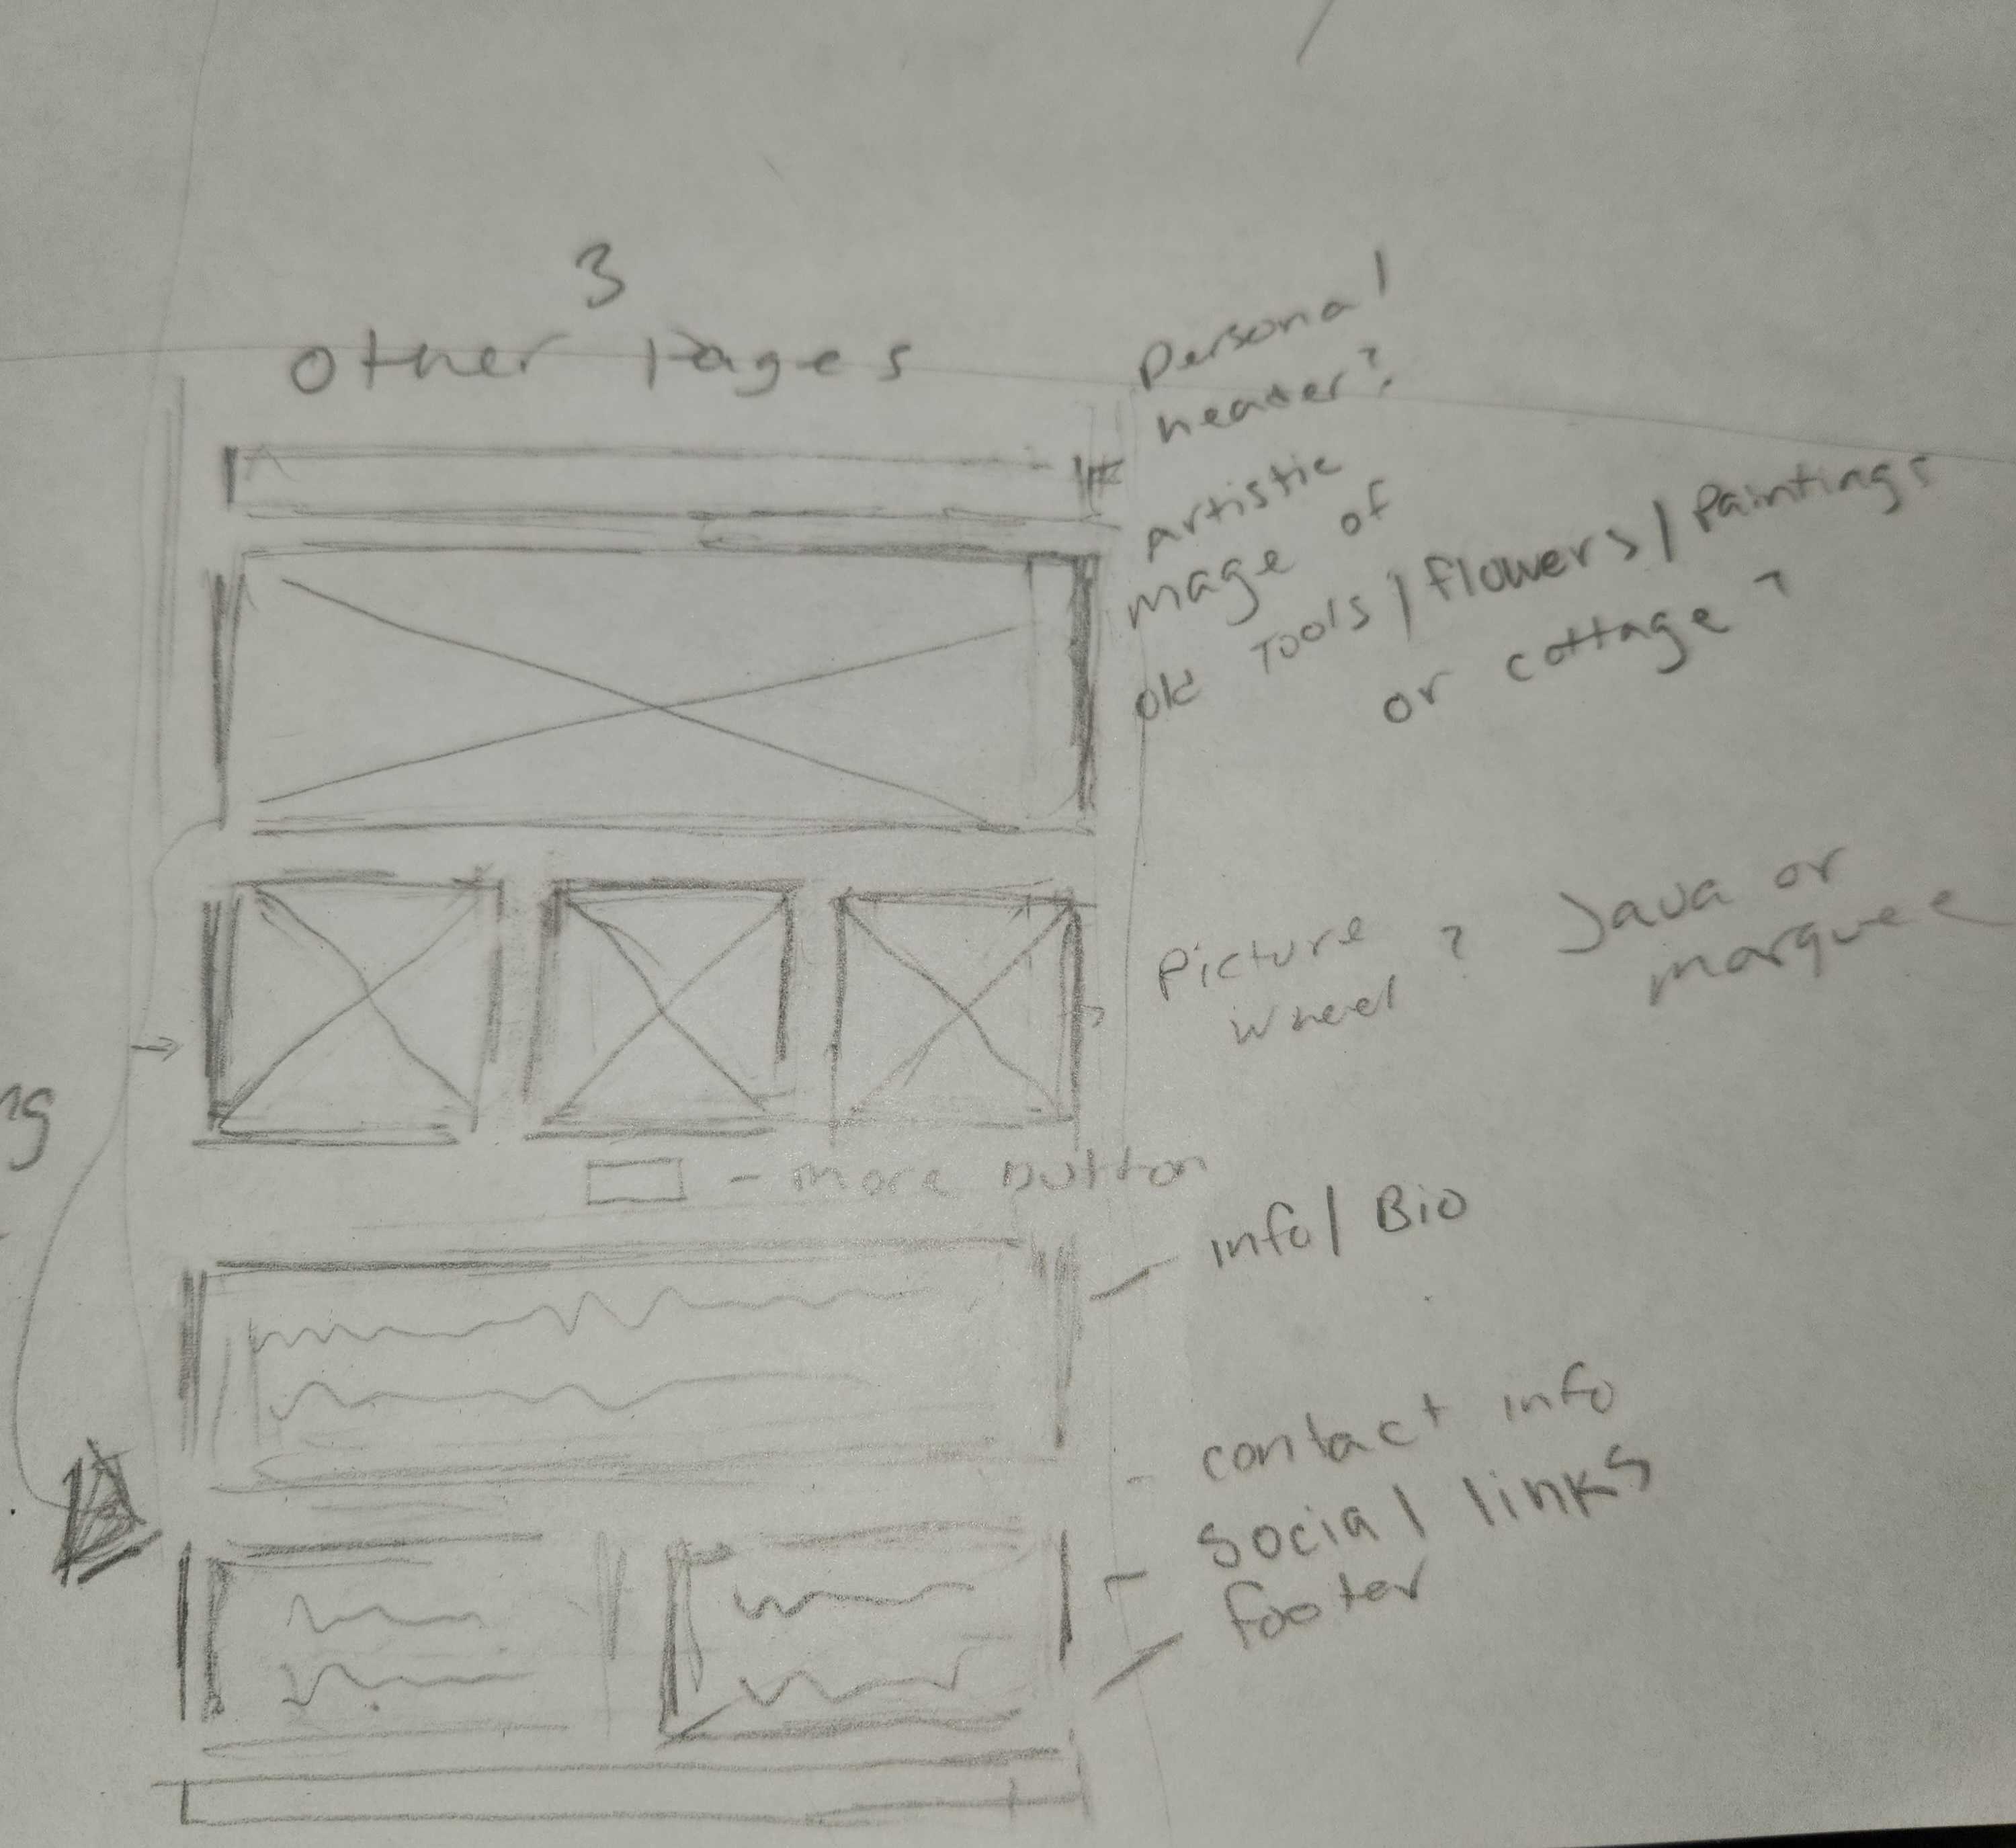 3
other Pages
Personal
header?
artistic
image of
old Tools / flowers / Paintings
or cottage?
Picture ? Java or
wheel marquee
- more button
info / Bio
- contact info
social links
footer